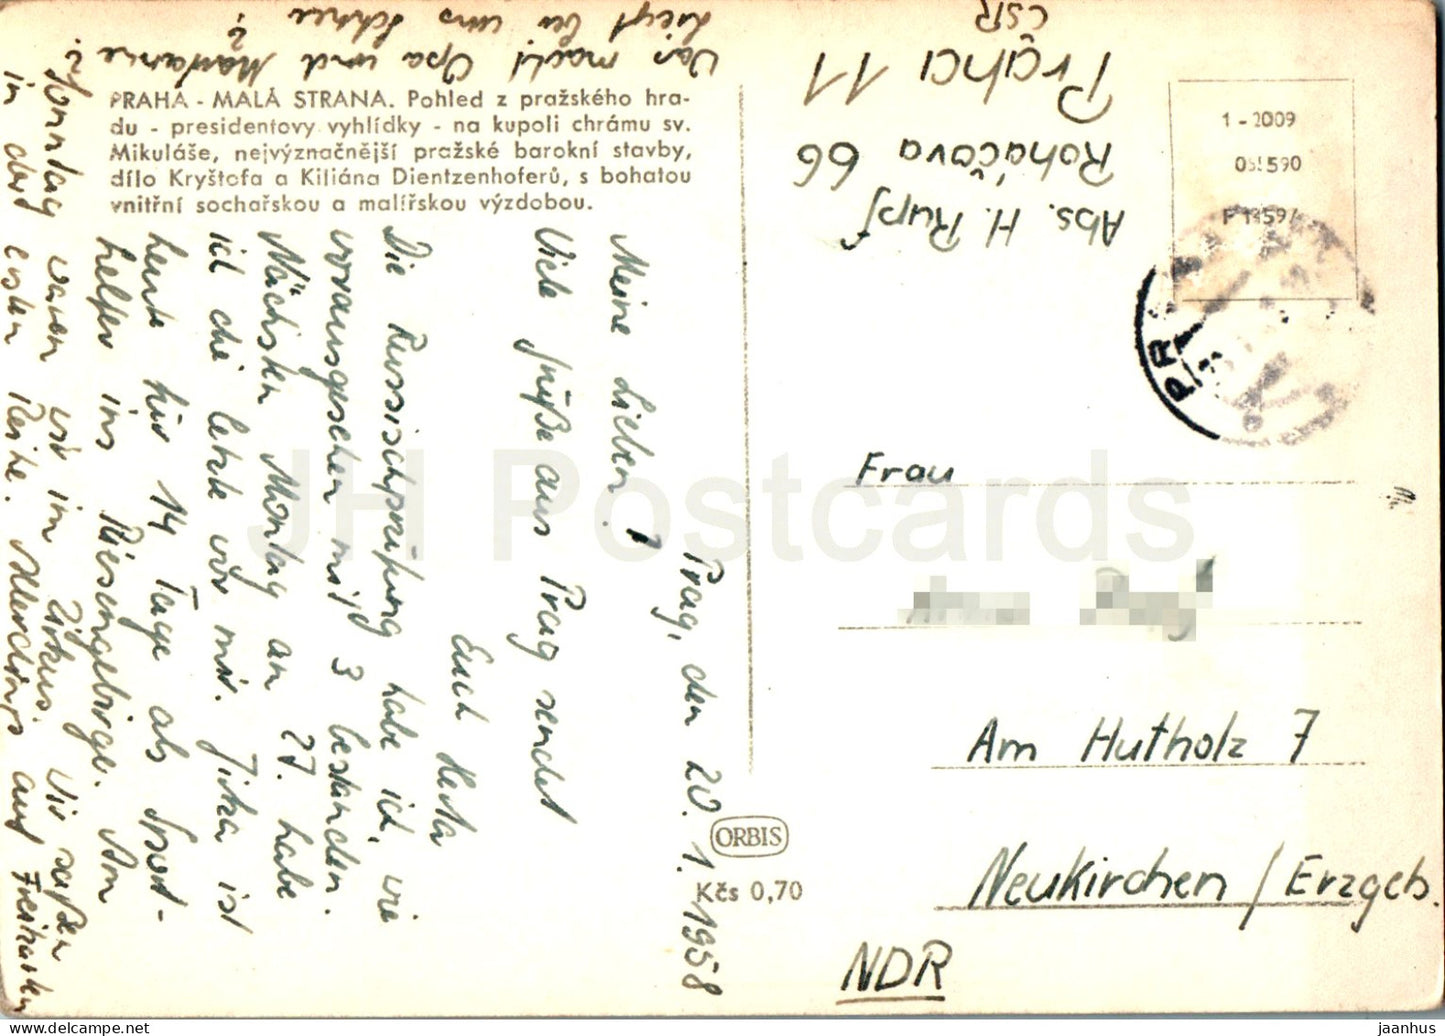 PRAHA - MALÁ STRANA. Pohled z pražského hra-
du - presidentovy vyhlídky - na kupoli chrámu sv.
Mikuláše, nejvýznačnější pražské barokní stavby,
dílo Kryštofa a Kiliána Dientzenhoferů, s bohatou
vnitřní sochařskou a malířskou výzdobou.
Prag, den 20. 1. 1958
Meine Lieben!
Viele Grüße aus Prag sendet
Euch Herta
Die Russischprüfung habe ich, wie
vorausgesehen mit 3 bestanden.
Nächsten Montag an 27. habe
ich die letzte vor mir. Jitka ist
heute für 14 Tage als Sport-
helfer ins Riesengebirge. Am
Sonntag waren wir im Zirkus. Wir saßen
in der ersten Reihe. Allerdings auf Freikarten
Was macht Opa und Marianne?
Liegt bei uns Schnee?
Abs. H. Rupf
Roháčova 66
Praha 11
ČSR
1 - 2009
ORBIS
Kčs 0,70
Frau
Am Hutholz 7
Neukirchen / Erzgeb.
NDR
JH Postcards
jaanhus